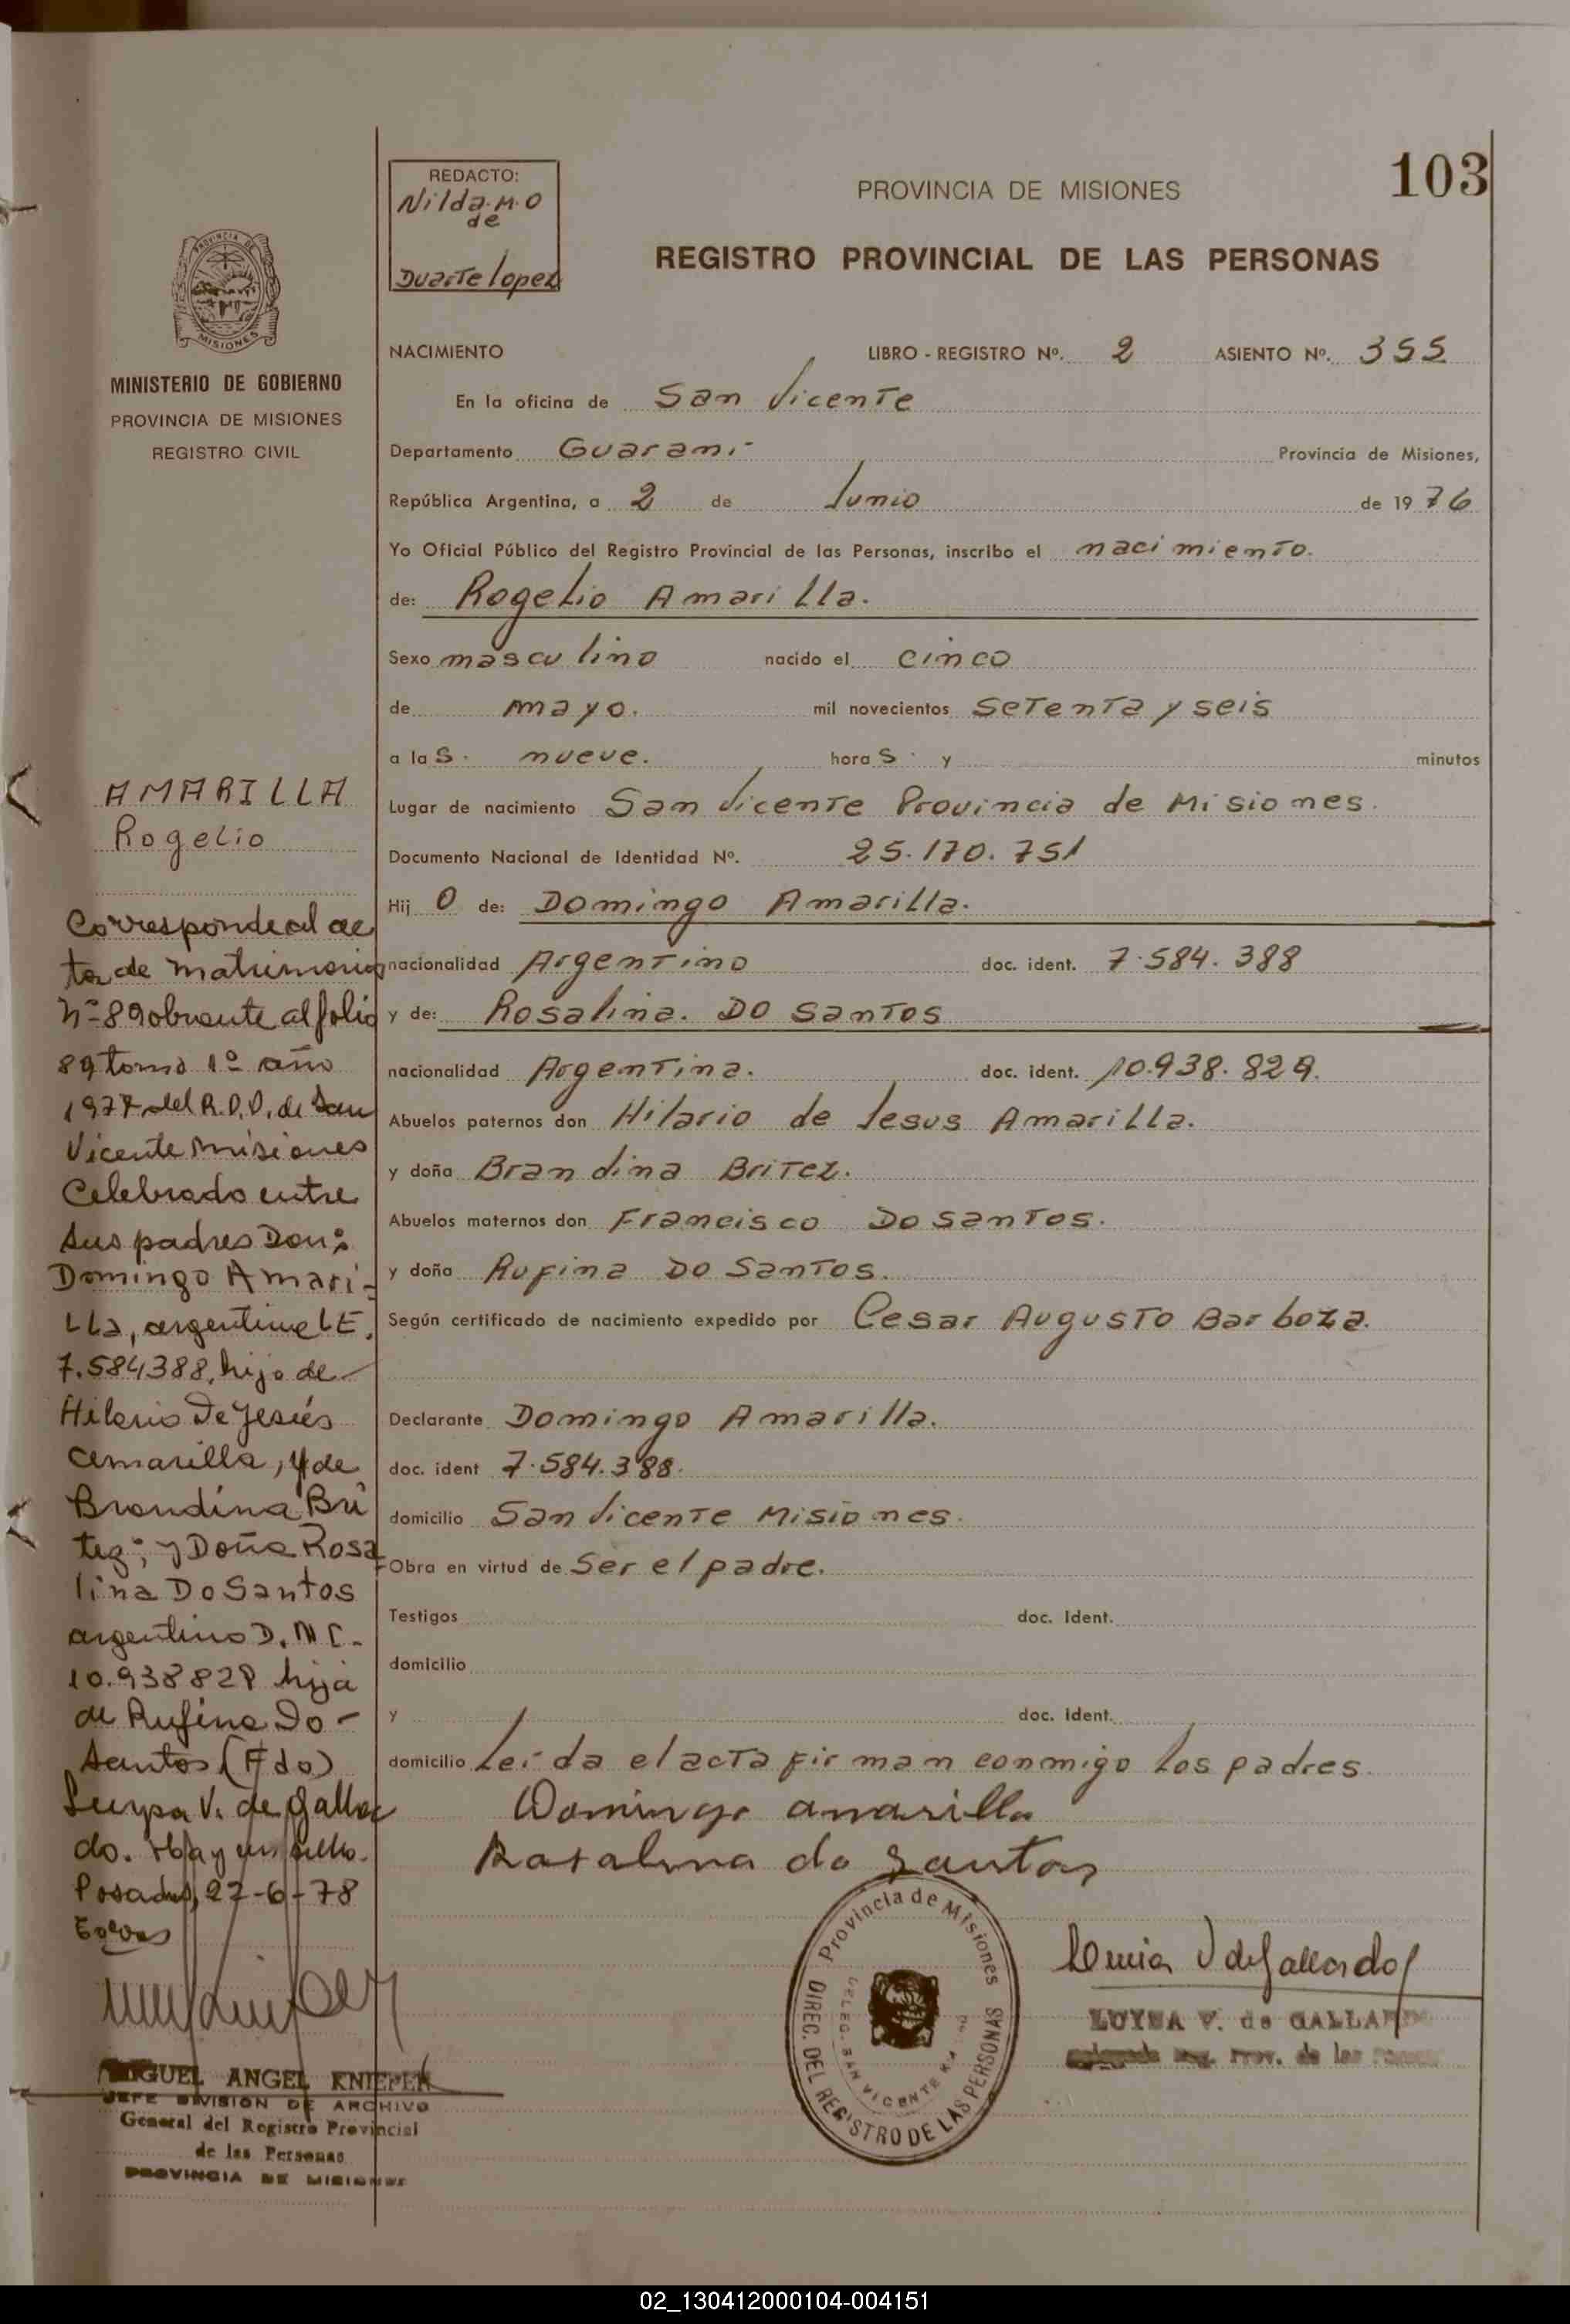 103
REDACTO:
Nilda M. O
de
Duarte lopez
PROVINCIA DE MISIONES
REGISTRO PROVINCIAL DE LAS PERSONAS
PROVINCIA DE
MISIONES
MINISTERIO DE GOBIERNO
PROVINCIA DE MISIONES
REGISTRO CIVIL
NACIMIENTO LIBRO - REGISTRO Nº. 2 ASIENTO Nº. 355
En la oficina de San Vicente
Departamento Guaraní Provincia de Misiones,
República Argentina, a 2 de Junio de 1976
Yo Oficial Público del Registro Provincial de las Personas, inscribo el nacimiento.
de: Rogelio Amarilla.
Sexo masculino nacido el cinco
de mayo. mil novecientos setenta y seis
a las. nueve. horas. y minutos
Lugar de nacimiento San Vicente Provincia de Misiones.
Documento Nacional de Identidad Nº. 25.170.751
Hijo de: Domingo Amarilla.
nacionalidad Argentino doc. ident. 7.584.388
y de: Rosalina. Do Santos
nacionalidad Argentina. doc. ident. 10.938.829.
Abuelos paternos don Hilario de Jesus Amarilla.
y doña Brandina Britez.
Abuelos maternos don Francisco Do Santos.
y doña Rufina Do Santos.
Según certificado de nacimiento expedido por Cesar Augusto Barboza.
Declarante Domingo Amarilla.
doc. ident 7.584.388.
domicilio San Vicente Misiones.
Obra en virtud de Ser el padre.
Testigos doc. Ident.
domicilio
y doc. ident.
domicilio Leída el acta firman conmigo los padres.
Domingo amarilla
Rosalina do Santos
Provincia de Misiones
DIREC. DEL REGISTRO DE LAS PERSONAS
DELEG. SAN VICENTE
V de Gallardo
LUYSA V. de GALLARDO
Prov. de las
AMARILLA
Rogelio
Corresponde al ac
ta de matrimonio
Nº 89 obrante al folio
89 tomo 1º año
1977 del R.P.P. de San
Vicente Misiones
Celebrado entre
sus padres Don:
Domingo Amari-
lla, argentino L E.
7.584388, hijo de
Hilario De Jesús
Amarilla, y de
Brandina Bri
tez; y Doña Rosa
lina Do Santos
argentino D. N I.
10.938828 hija
de Rufina Do-
Santos (Fdo)
Luysa V. de Galla
do. Hay un sello.
Posadas, 27-6-78
MIGUEL ANGEL KNIEPER
JEFE DIVISION DE ARCHIVO
General del Registro Provincial
de las Personas
PROVINCIA DE MISIONES
02_130412000104-004151